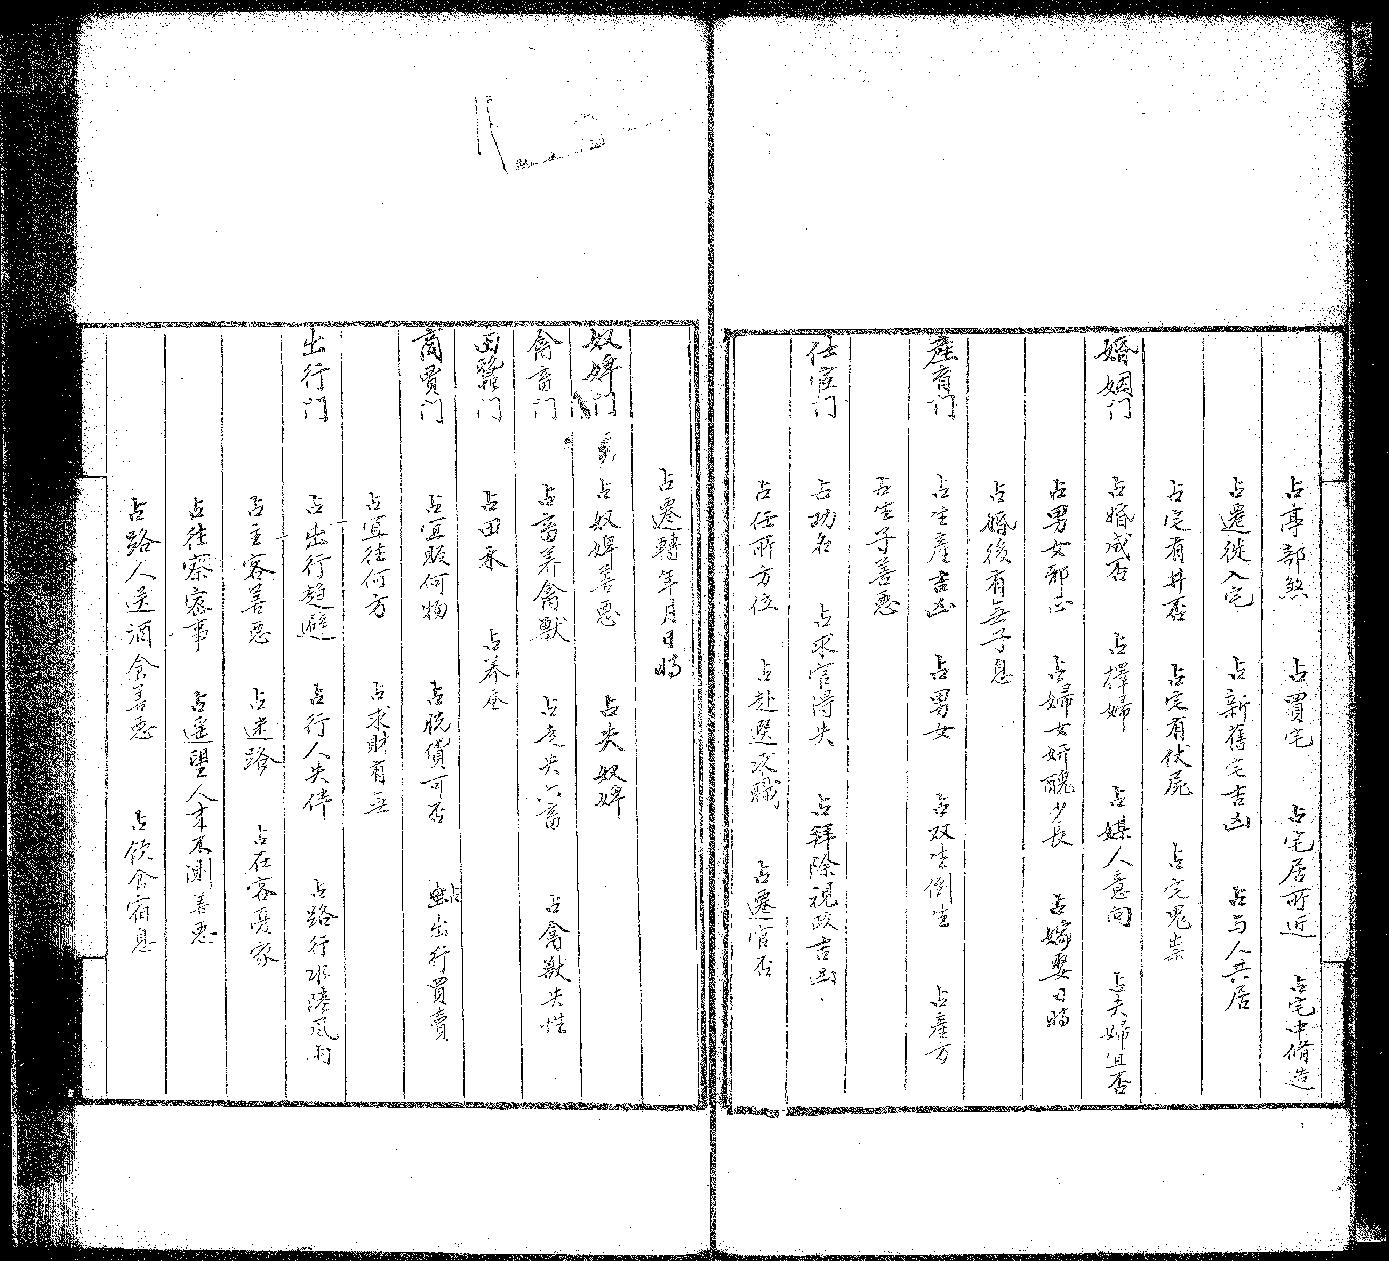 占亭部煞　占買宅　占宅居所近　占宅中脩造
占遷徙入宅　占新舊宅吉凶　占与人共居
占宅有井否　占宅有伏屍　占宅鬼祟
婚姻门　占婚成否　占擇婦　占媒人意向　占夫婦宜否
占男女邪正　占婦女妍醜少長　占嫁娶日時
占婚後有無子息
產育门　占生產吉凶　占男女　占双生倒生　占產方
占生子善惡
仕宦门　占功名　占求官得失　占拜除視政吉凶
占任所方位　占赴選次　占遷官否
占遷轉年月日時
奴婢门　占奴婢善惡　占失奴婢
禽畜门　占畜养禽獸　占走失六畜　占禽獸失性
田蠶门　占田禾　占养蚕
商賈门　占宜販何物　占脱貨可否　占出行買賣
占宜往何方　占求財有無
出行门　占出行趋避　占行人失伴　占路行水陸風雨
占主客善惡　占迷路　占在客憂家
占往察密事　占遥望人来不測善惡
占路人送酒食善惡　占飲食宿息